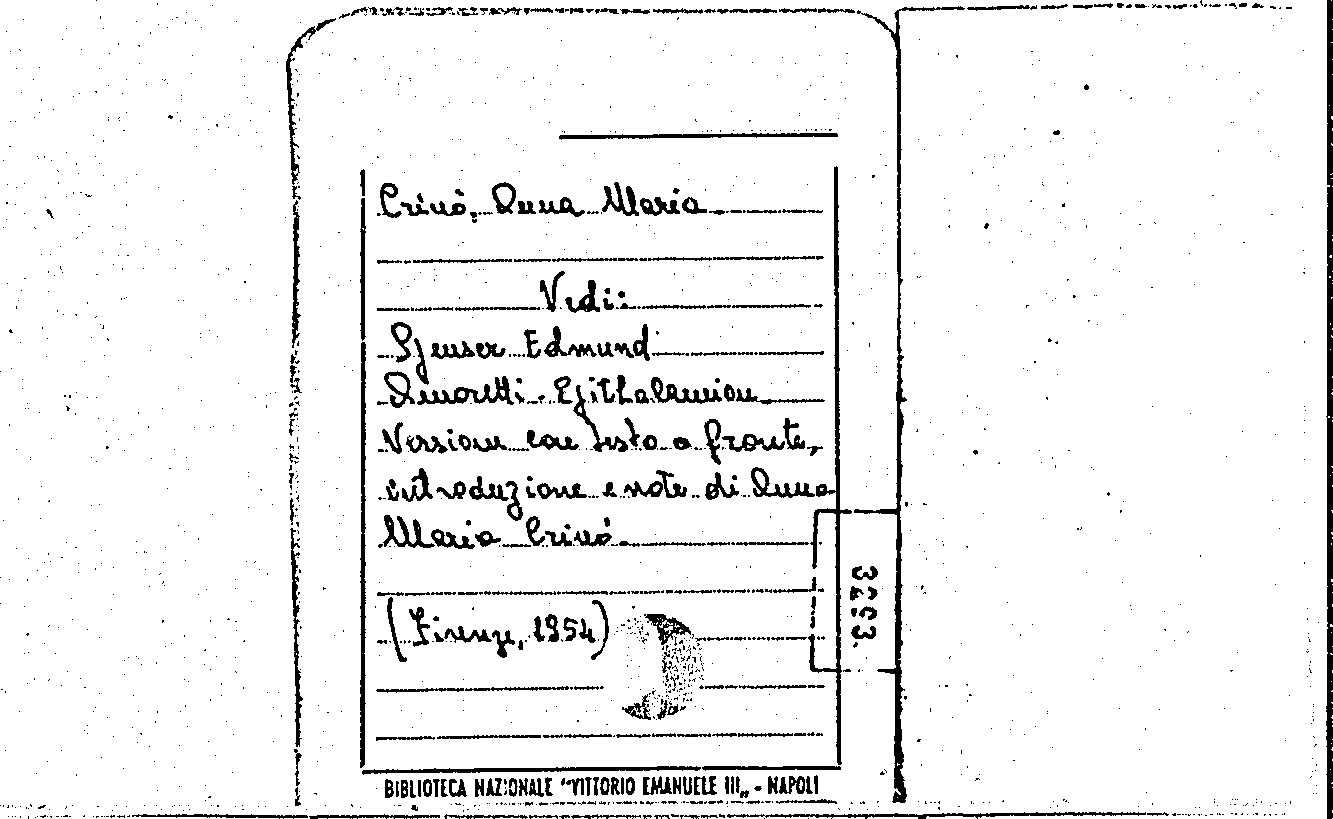 Crinò, Anna Maria
Vedi:
Spenser Edmund
Amoretti - Epithalamion
Versione con testo a fronte,
introduzione e note di Anna
Maria Crinò.
(Firenze, 1954)
3293.
BIBLIOTECA NAZIONALE "VITTORIO EMANUELE III„ - NAPOLI